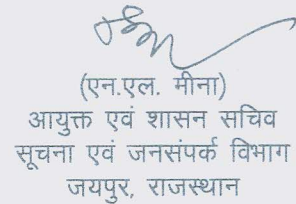 (एन.एल. मीना)
आयुक्त एवं शासन सचिव
सूचना एवं जनसंपर्क विभाग
जयपुर, राजस्थान